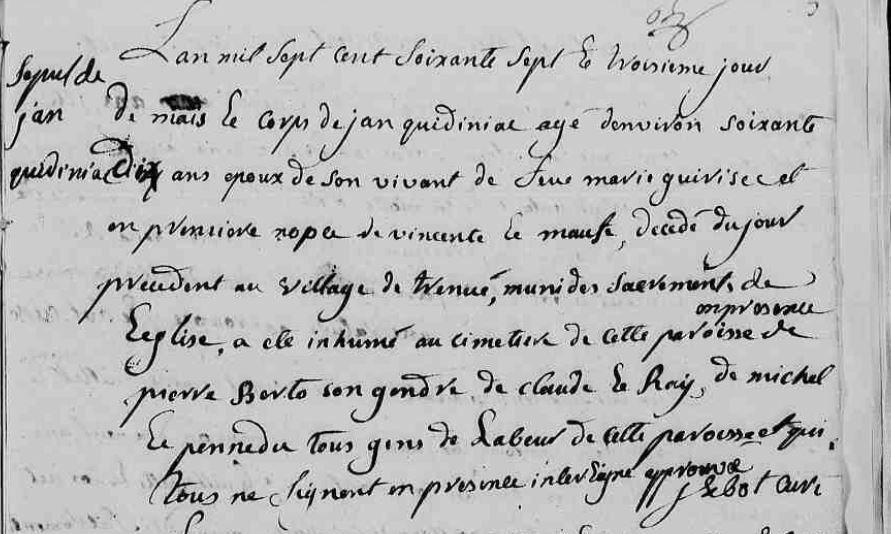 Lan mil sept cent soixante sept le troisieme jour
Sepul de
jan
quidiniac
de mais le corps de jan quidiniac agé denviron soixante
dix ans epoux de son vivant de feue marie guirisec et
en premiere nopce de vincente le mause, decedé du jour
precedent au village de trenué, muni des sacrements de
en presence
Leglise, a ete inhumé au cimetiere de cette paroisse de
pierre Berto son gendre de claude le Ray, de michel
Le pennedu tous gens de Labeur de cette paroisse et qui
tous ne signent en presence interligne approuvé
J Lebot curé